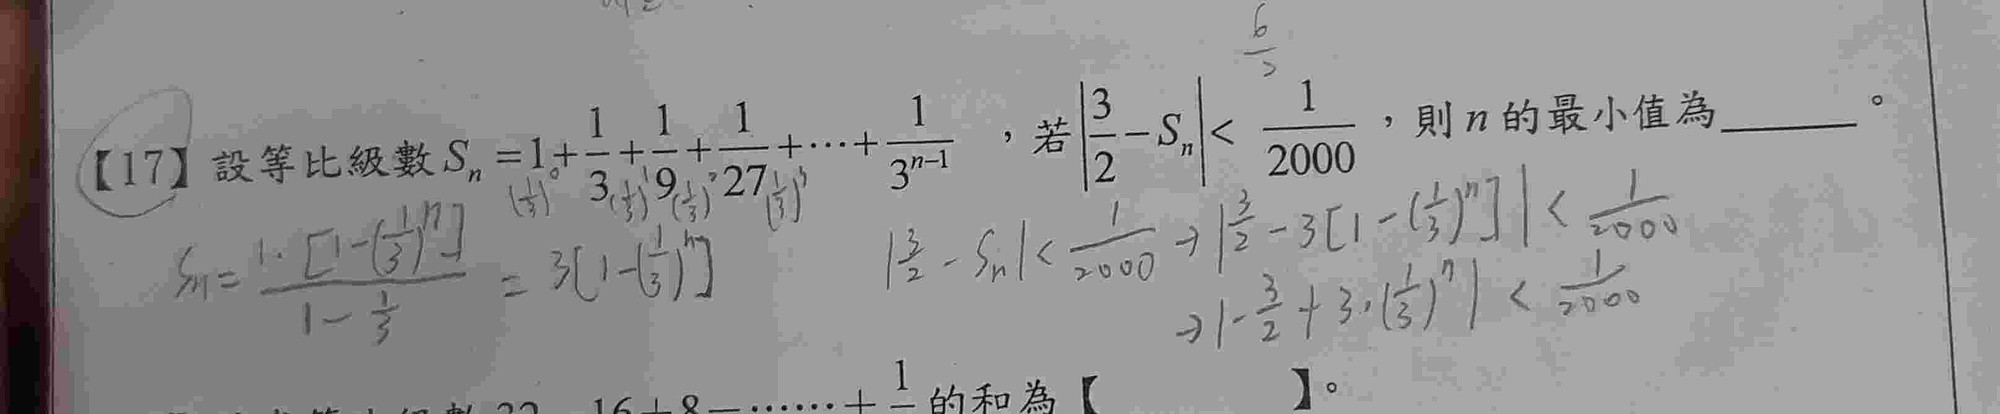 6
【17】設等比級數 Sₙ = 1 + 1/3 + 1/9 + 1/27 + ⋯ + 1/3ⁿ⁻¹ ，若 |3/2 − Sₙ| < 1/2000 ，則 n 的最小值為______。
(1/3)⁰ (1/3)¹ (1/3)² (1/3)³
Sₙ = 1·[1−(1/3)ⁿ] / (1−1/3) = 3[1−(1/3)ⁿ]
|3/2 − Sₙ| < 1/2000 → |3/2 − 3[1−(1/3)ⁿ]| < 1/2000
→ |−3/2 + 3·(1/3)ⁿ| < 1/2000
16+8−⋯⋯+ 1 的和為【 】。